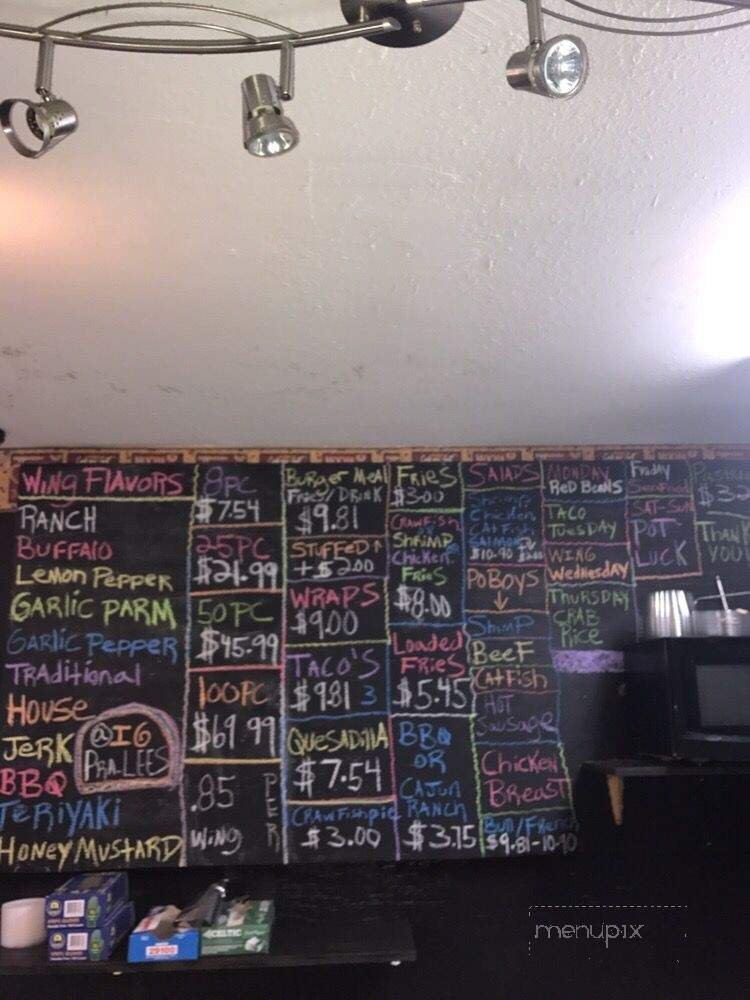 WING FLAVORS
RANCH
BUFFAlO
LEMON PEPPER
GARLIC PARM
GARLIC PEPPER
TRAditional
HOUSE
JERK
BBQ
TERIYAKI
HONEY MUSTARD
@IG
PRA-LEES
8PC
$7.54
25PC
$21.99
50PC
$45.99
100PC
$69.99
.85 PER
WING
BURGER MEAl
FRIES/DRINK
$9.81
STUFFED
+$2.00
WRAPS
$9.00
TACO'S
$9.81 3
QUESADILLA
$7.54
CRAWFishpie
$3.00
FRIES
$3.00
CRAWFiSh
SHRIMP
Chicken
FRIES
$8.00
Loaded
FRIES
$5.45
BBQ
OR
CAJUN
RANCH
$3.75
SALADS
Shrimp
Chicken
CATFISH
SALMON
$10.90
POBOYS
ShRIMP
BEEF
CATFISH
HOT
SAUSAGE
CHICKEN
BREAST
$9.81-10.90
MONDAY
RED BEANS
TACO
TUESDAY
WING
WEDNESDAY
THURSDAY
CRAB
RICE
FRIDAY
SEAFOOD
SAT-SUN
POT
LUCK
THANK
YOU
29100
CELTIC
menupix